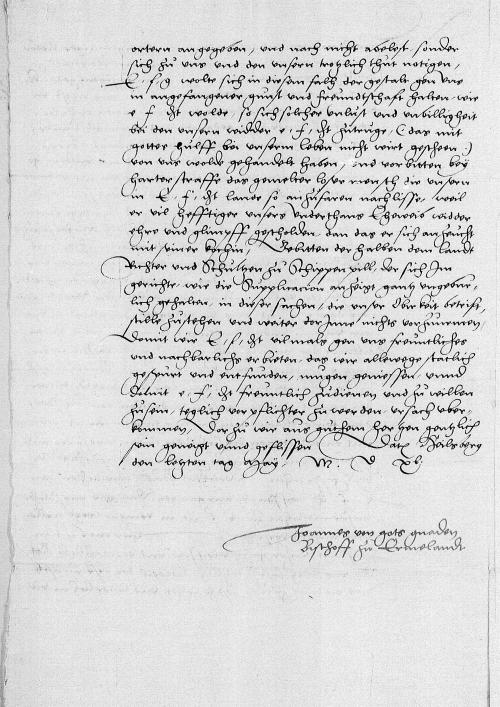 ortern angegeben, und nach nicht abelest, sonder
sich zu uns und den unsern teglich thut notigen,
E. f. g wolte sich in diesem falh der gestalt gen uns
in angefangener gunst und freundtschaft halten, wie
e f. dt wolde, so sich solcher unlust und unbilligheit
bei den unsern widder e. f. dt zutruge, (das mit
gottes hulff bei unserm leben nicht wirt gescheen:)
von uns wolde gehandelt haben, und vorbitten bey
harter straffe das gemelter loser mensch die unsern
in E. f. dt lande so anzufaren nachlisse, weil
er vil hefftiger unsers underthans eheweib widder
ehre und glimpff gescholden, dan das er sich anzeucht
mit seiner kochin, Gebieten derhalben dem landt
Richter und Schultzen zu Schippenpill, der sich Im
gerichte, wie die Supplicacion anzeigt gantz ungebur-
lich gehalten, in dieser sachen, die unser Oberkeit betrift,
stille zustehen und weiter darinne nichts vorzunemen,
Domit wir E. f. dt vilmals gen uns freuntliches
und nachbarlichs erbieten, das wir allewege statlich
gespurt und entfunden, mugen geniessen, unnd
damit e f. dt freuntlich zudienen und zu willen
zusein, teglich vorpflichter zu werden, ursach uber-
kommen, Darzu wir aus guthem hertzen gentzlich
sein geneigt unnd geflissen Dat Heilsberg
den letzten tag May. M. D XL.
Joannes von gots gnaden
Bischoff zu Ermelandt